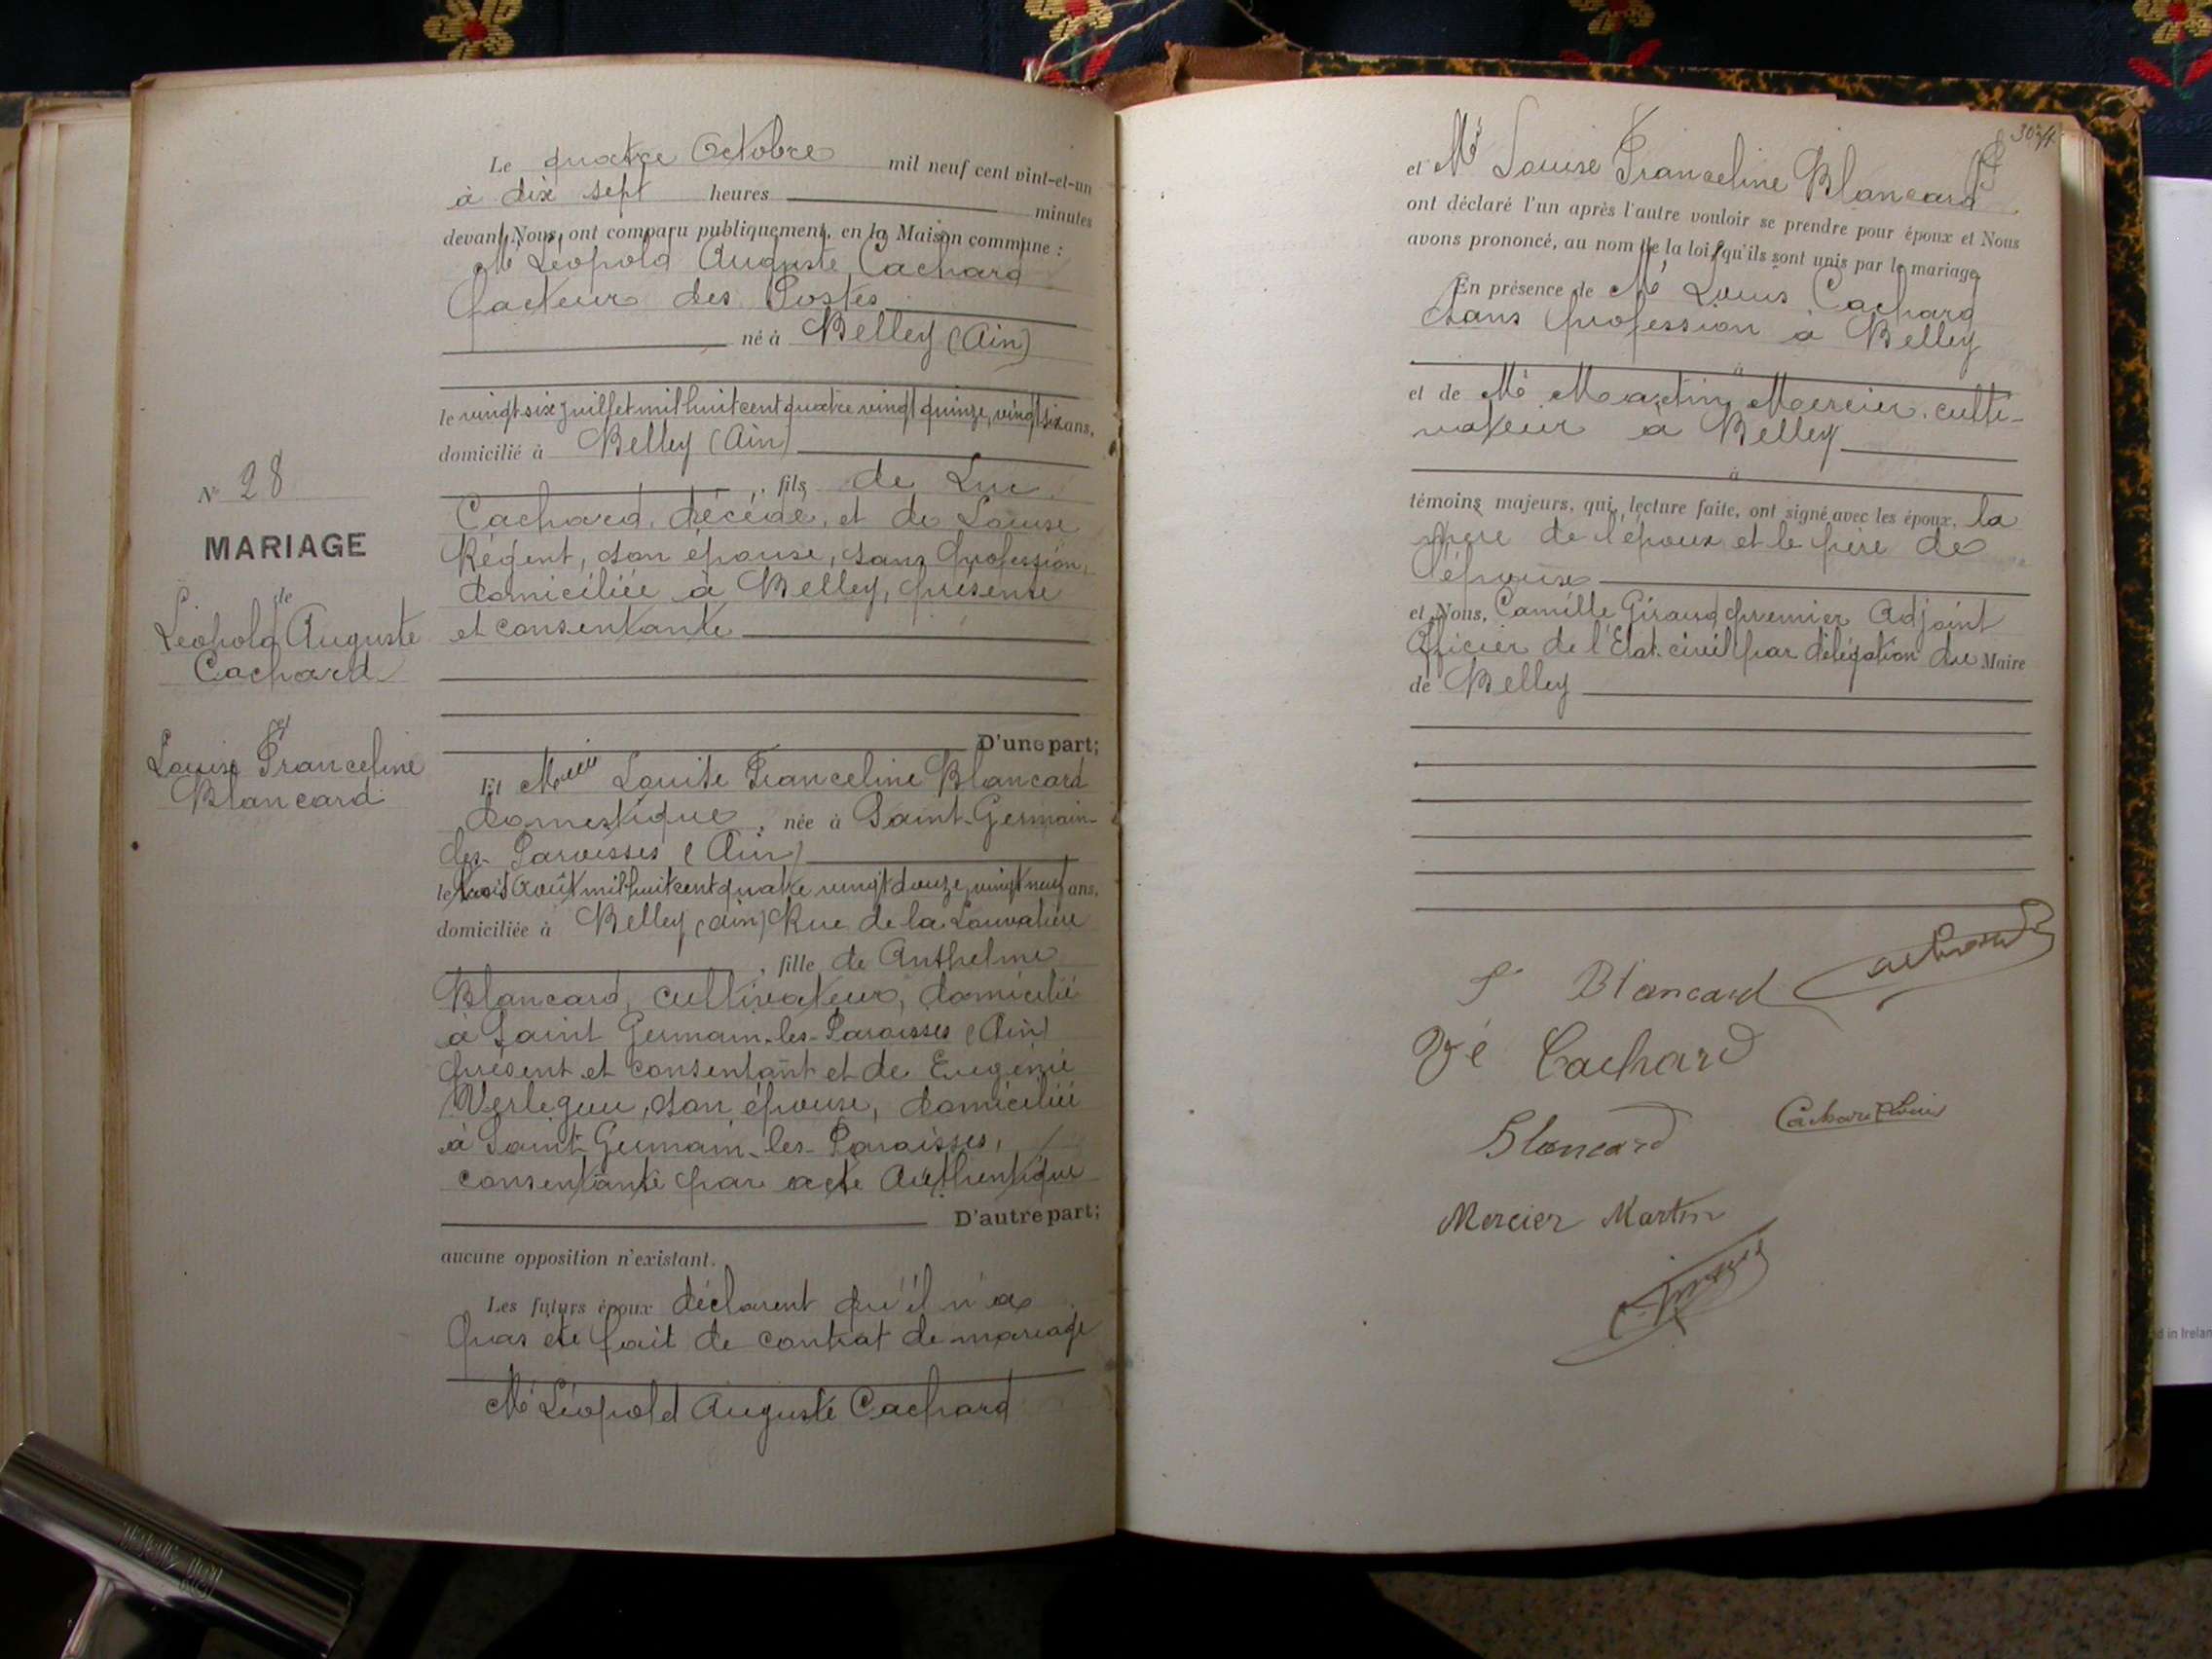 Le quatre Octobre mil neuf cent vint-et-un
à dix sept heures minutes
devant Nous, ont comparu publiquement, en la Maison commune :
Mr Léopold Auguste Cachard
facteur des Postes
né à Belley (Ain)
le vingt six juillet mil huit cent quatre vingt quinze, vingt six ans,
domicilié à Belley (Ain)
, fils de Luc
Cachard, décédé, et de Louise
Régent, son épouse, sans profession,
domiciliée à Belley, présente
et consentante
D'une part;
N° 28
MARIAGE
de
Léopold Auguste
Cachard
et
Louise Franceline
Blancard
Et Melle Louise Franceline Blancard
domestique, née à Saint-Germain-
les-Paroisses (Ain)
le trois Août mil huit cent quatre vingt douze, vingt neuf ans,
domiciliée à Belley (Ain) Rue de la Louvatière
, fille de Anthelme
Blancard, cultivateur, domicilié
à Saint Germain-les-Paroisses (Ain)
présent et consentant et de Eugénie
son épouse, domiciliée
à Saint-Germain-les-Paroisses,
consentante par acte Authentique
D'autre part;
aucune opposition n'existant.
Les futurs époux déclarent qu'il n'a
pas été fait de contrat de mariage
Mr Léopold Auguste Cachard
et Me Louise Franceline Blancard
ont déclaré l'un après l'autre vouloir se prendre pour époux et Nous
avons prononcé, au nom de la loi, qu'ils sont unis par le mariage,
En présence de Mr Louis Cachard
sans profession à Belley
à
et de Mr Martin Mercier, culti-
vateur à Belley
à
témoins majeurs, qui, lecture faite, ont signé avec les époux, la
mère de l'époux et le père de
l'épouse
et Nous, Camille Giraud premier Adjoint
Officier de l'Etat-civil par délégation du Maire
de Belley
Blancard Cachard
Vve Cachard
Blancard Cachard Louis
Mercier Martin